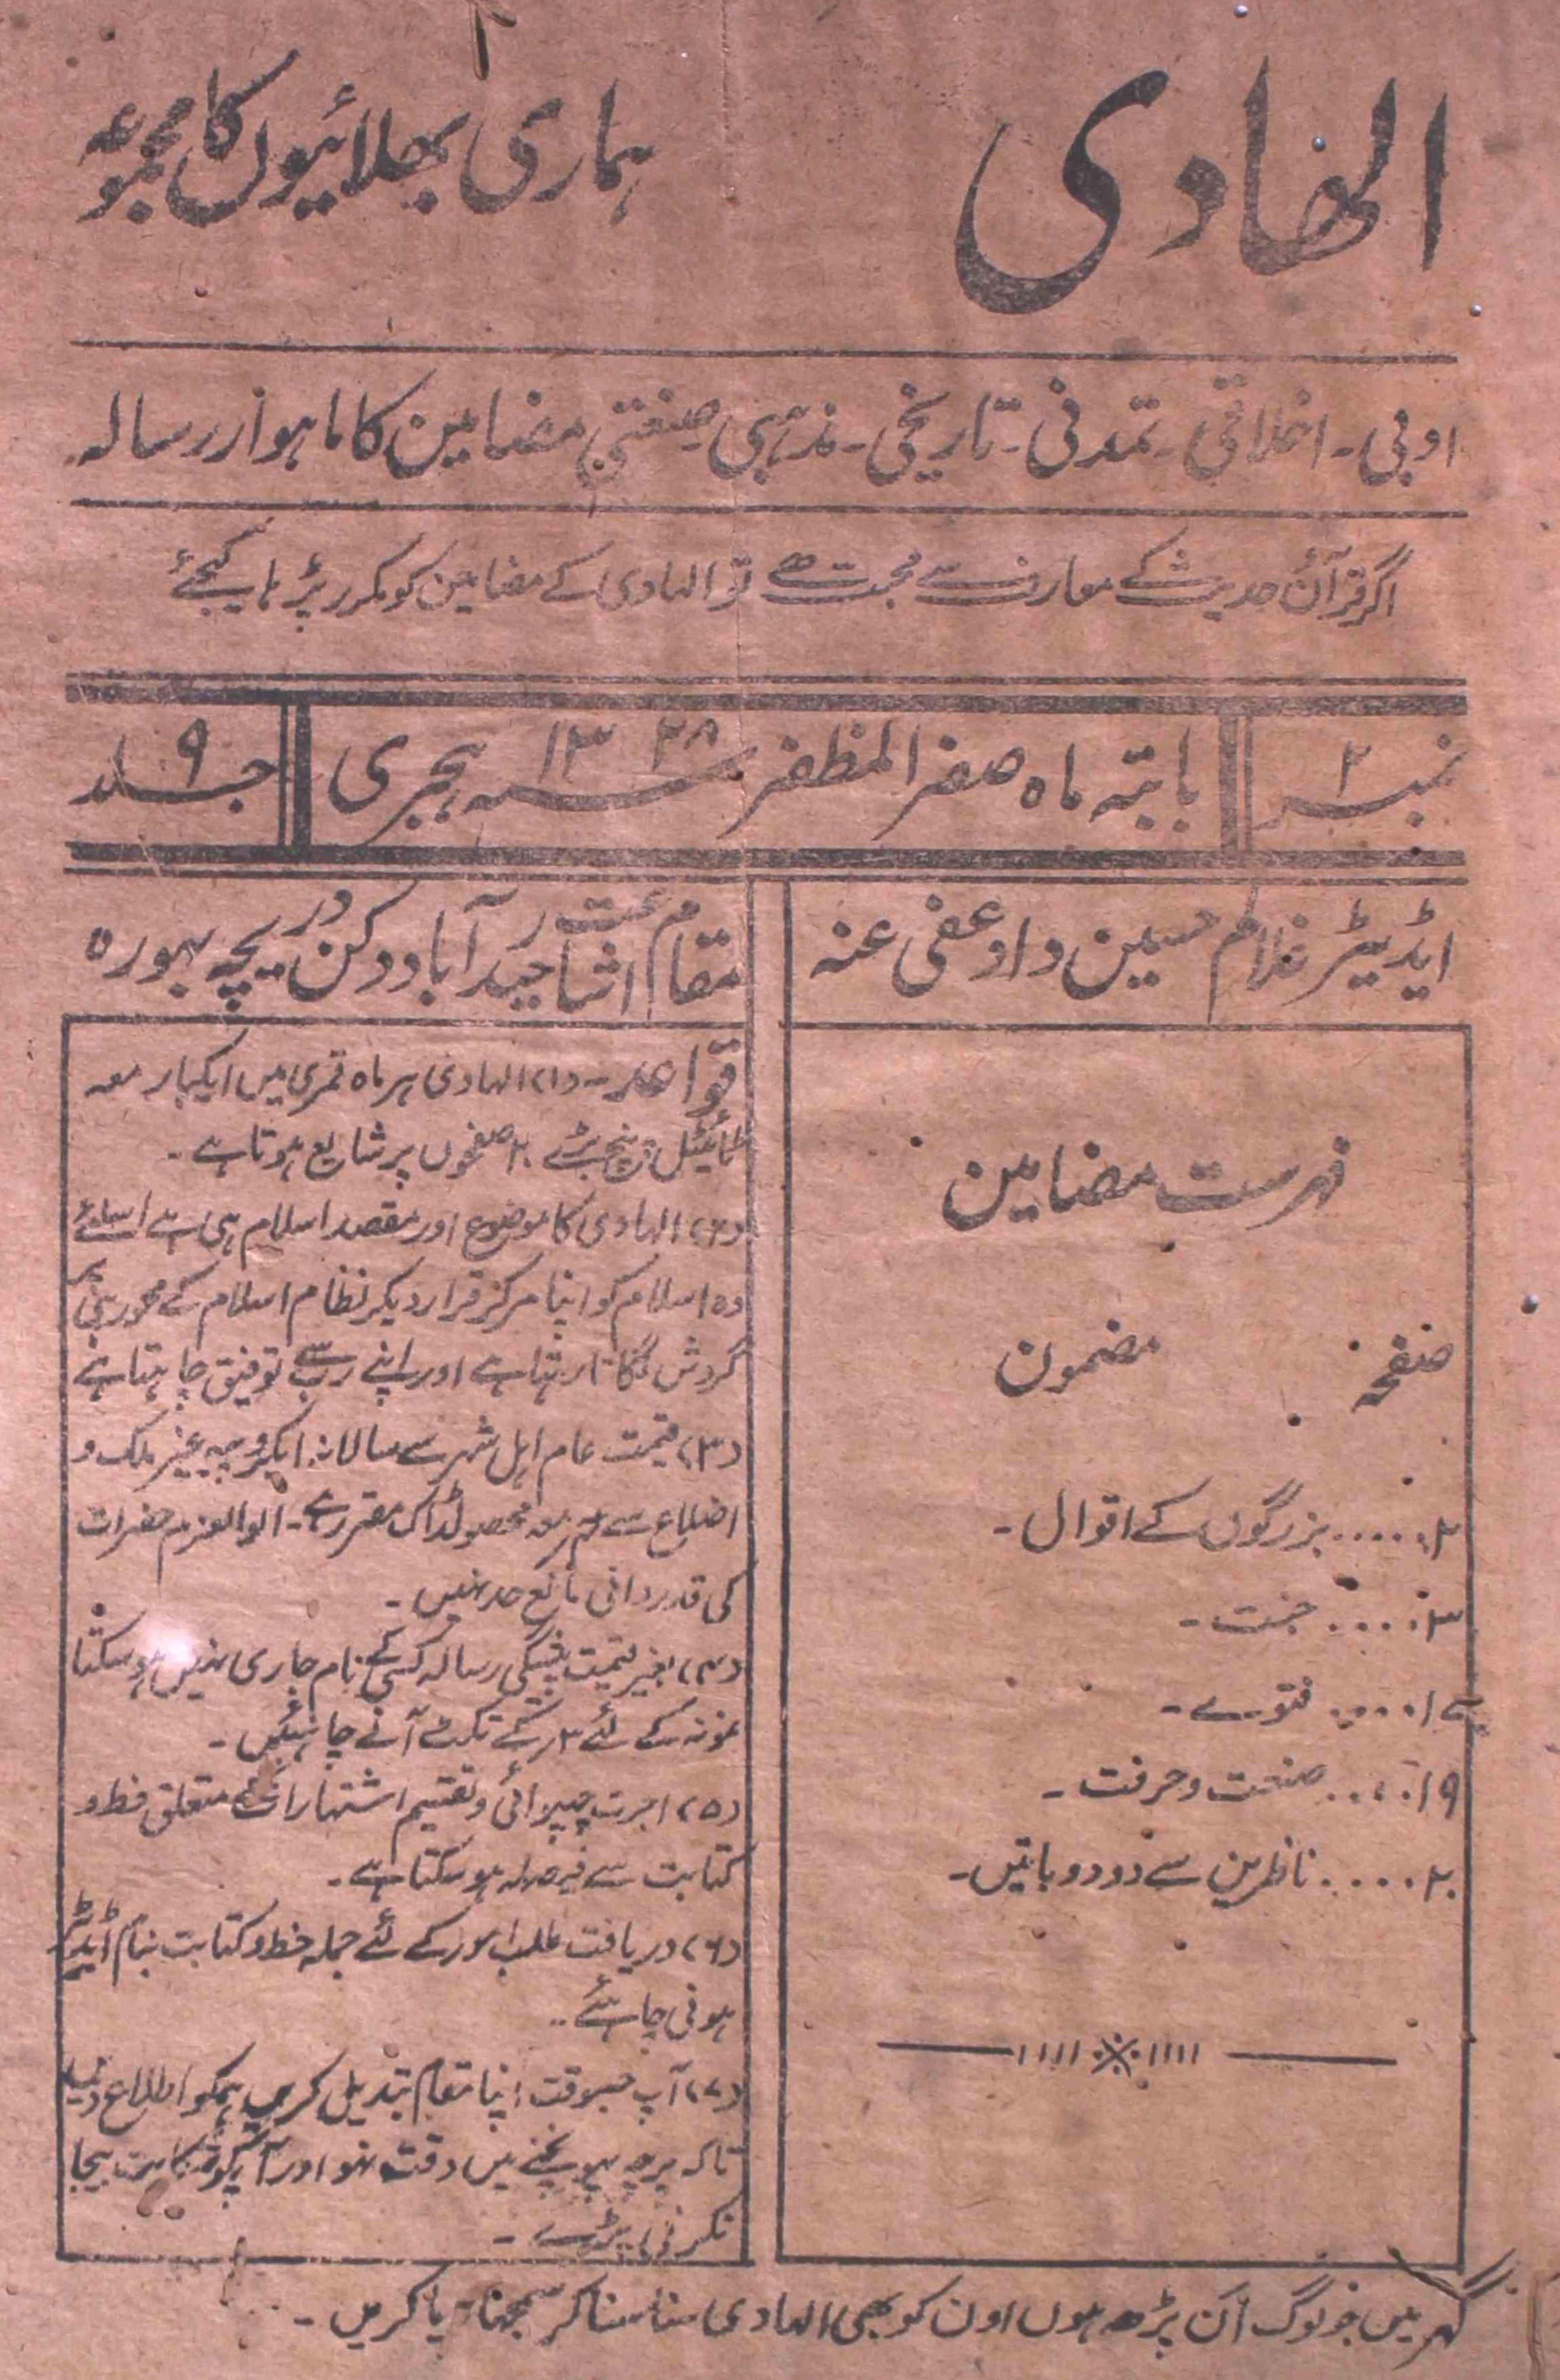 الھادی
ہماری بھلائیوں کا مجموعہ
ادبی۔ اخلاقی۔ تمدنی۔ تاریخی۔ مذہبی صنعتی مضامین کا ماہوار رسالہ
اگر قرآن حدیث کے معارف سے محبت ہے تو الہادی کے مضامین کو مکرر پڑہا کیجئے
نمبر ۲
بابتہ ماہ صفر المظفر ۱۳۳۸ سنہ ہجری
جلد ۹
ایڈیٹر غلام حسین داود عفی عنہ
مقام اشاعت حیدرآباد دکن دریچہ بہورہ
فہرست مضامین
صفحہ مضمون
۲..... بزرگوں کے اقوال۔
۳.... جنت۔
۱۷.... فتوے۔
۱۹.... صنعت و حرفت۔
۲۰.... ناظرین سے دو دو باتیں۔
قواعد۔ (۱) الہادی ہر ماہ قمری میں ایکبار معہ
ٹائیٹل پیج بڑے ۲۰ صفحوں پر شایع ہوتا ہے۔
(۲) الہادی کا موضوع اور مقصد اسلام ہی ہے اسلئے
وہ اسلام کو اپنا مرکز قرار دیکر نظام اسلام کے محور ہی پر
گردش لگاتا رہتا ہے اور اپنے رب سے توفیق چاہتا ہے
(۳) قیمت عام اہل شہر سے سالانہ ایکروپیہ غیر ملک و
اضلاع سے معہ محصولڈاک مقرر ہے۔ الوالعزم حضرات
کی قدردانی مانع حد نہیں۔
(۴) بغیر قیمت پیشگی رسالہ کسی کے نام جاری نہیں ہوسکتا
نمونہ کے لئے ۲ر کے ٹکٹ آنے چاہئیں۔
(۵) اجرت چھپوائی و تقسیم اشتہارات کے متعلق خط و
کتابت سے فیصلہ ہوسکتا ہے۔
(۶) دریافت طلب امور کے لئے جملہ خط و کتابت بنام اڈیٹر
ہونی چاہئے۔
(۷) آپ جسوقت اپنا مقام تبدیل کریں ہمکو اطلاع دیں
تاکہ پرچہ پہونچنے میں دقت نہو اور آپکو شکایت بیجا
نکرنی پڑے۔
گہر میں جو لوگ ان پڑھ ہوں اون کو بھی الہادی سنا سنا کر سمجھایا کریں۔